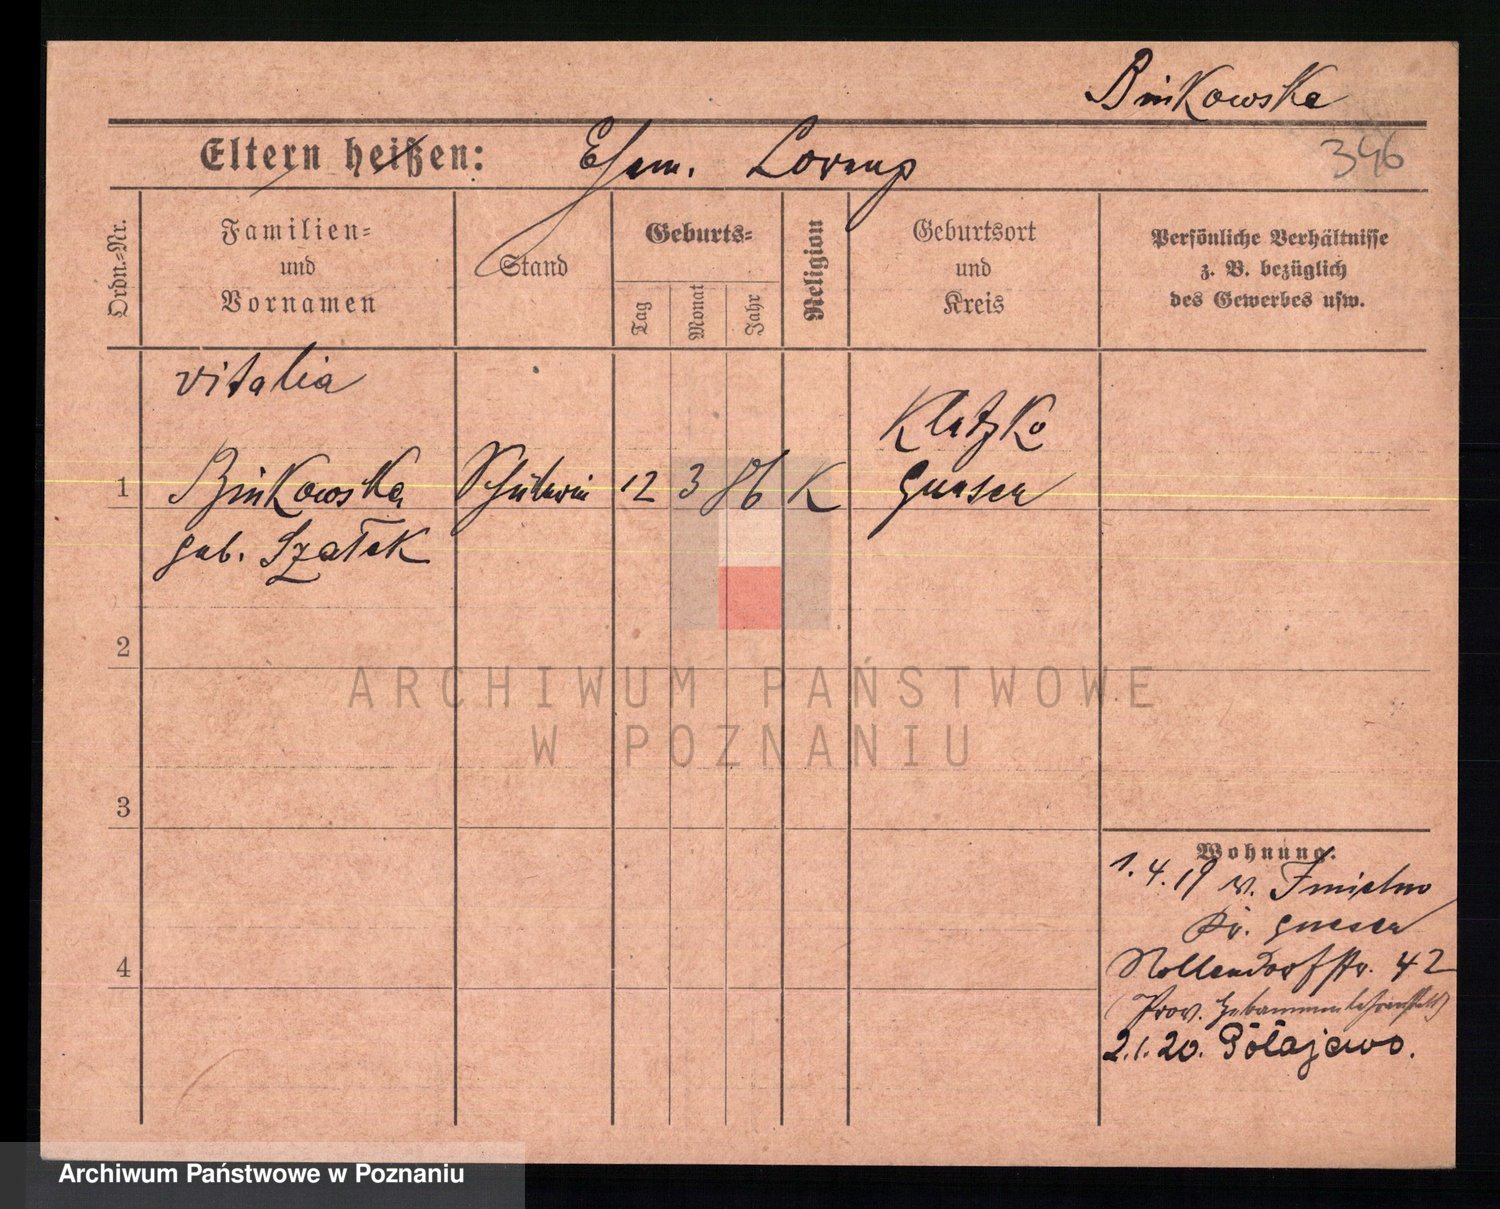 Binkowska
396
Eltern heißen: Ehem. Lorenz
Ordn.-Nr.
Familien-
und
Vornamen
Stand
Geburts-
Tag
Monat
Jahr
Religion
Geburtsort
und
Kreis
Persönliche Verhältnisse
z. B. bezüglich
des Gewerbes usw.
Vitalia
1 Binkowska Schülerin 12 3 86 K
geb. Szałek
Kletzko
Gnesen
2
3
4
Wohnung.
1.4.19 v. Imielno
Kr. Gnesen
Nollendorfstr. 42
(Prov. Hebammenlehranstalt)
2.1.20. Połajewo.
ARCHIWUM PAŃSTWOWE
W POZNANIU
Archiwum Państwowe w Poznaniu